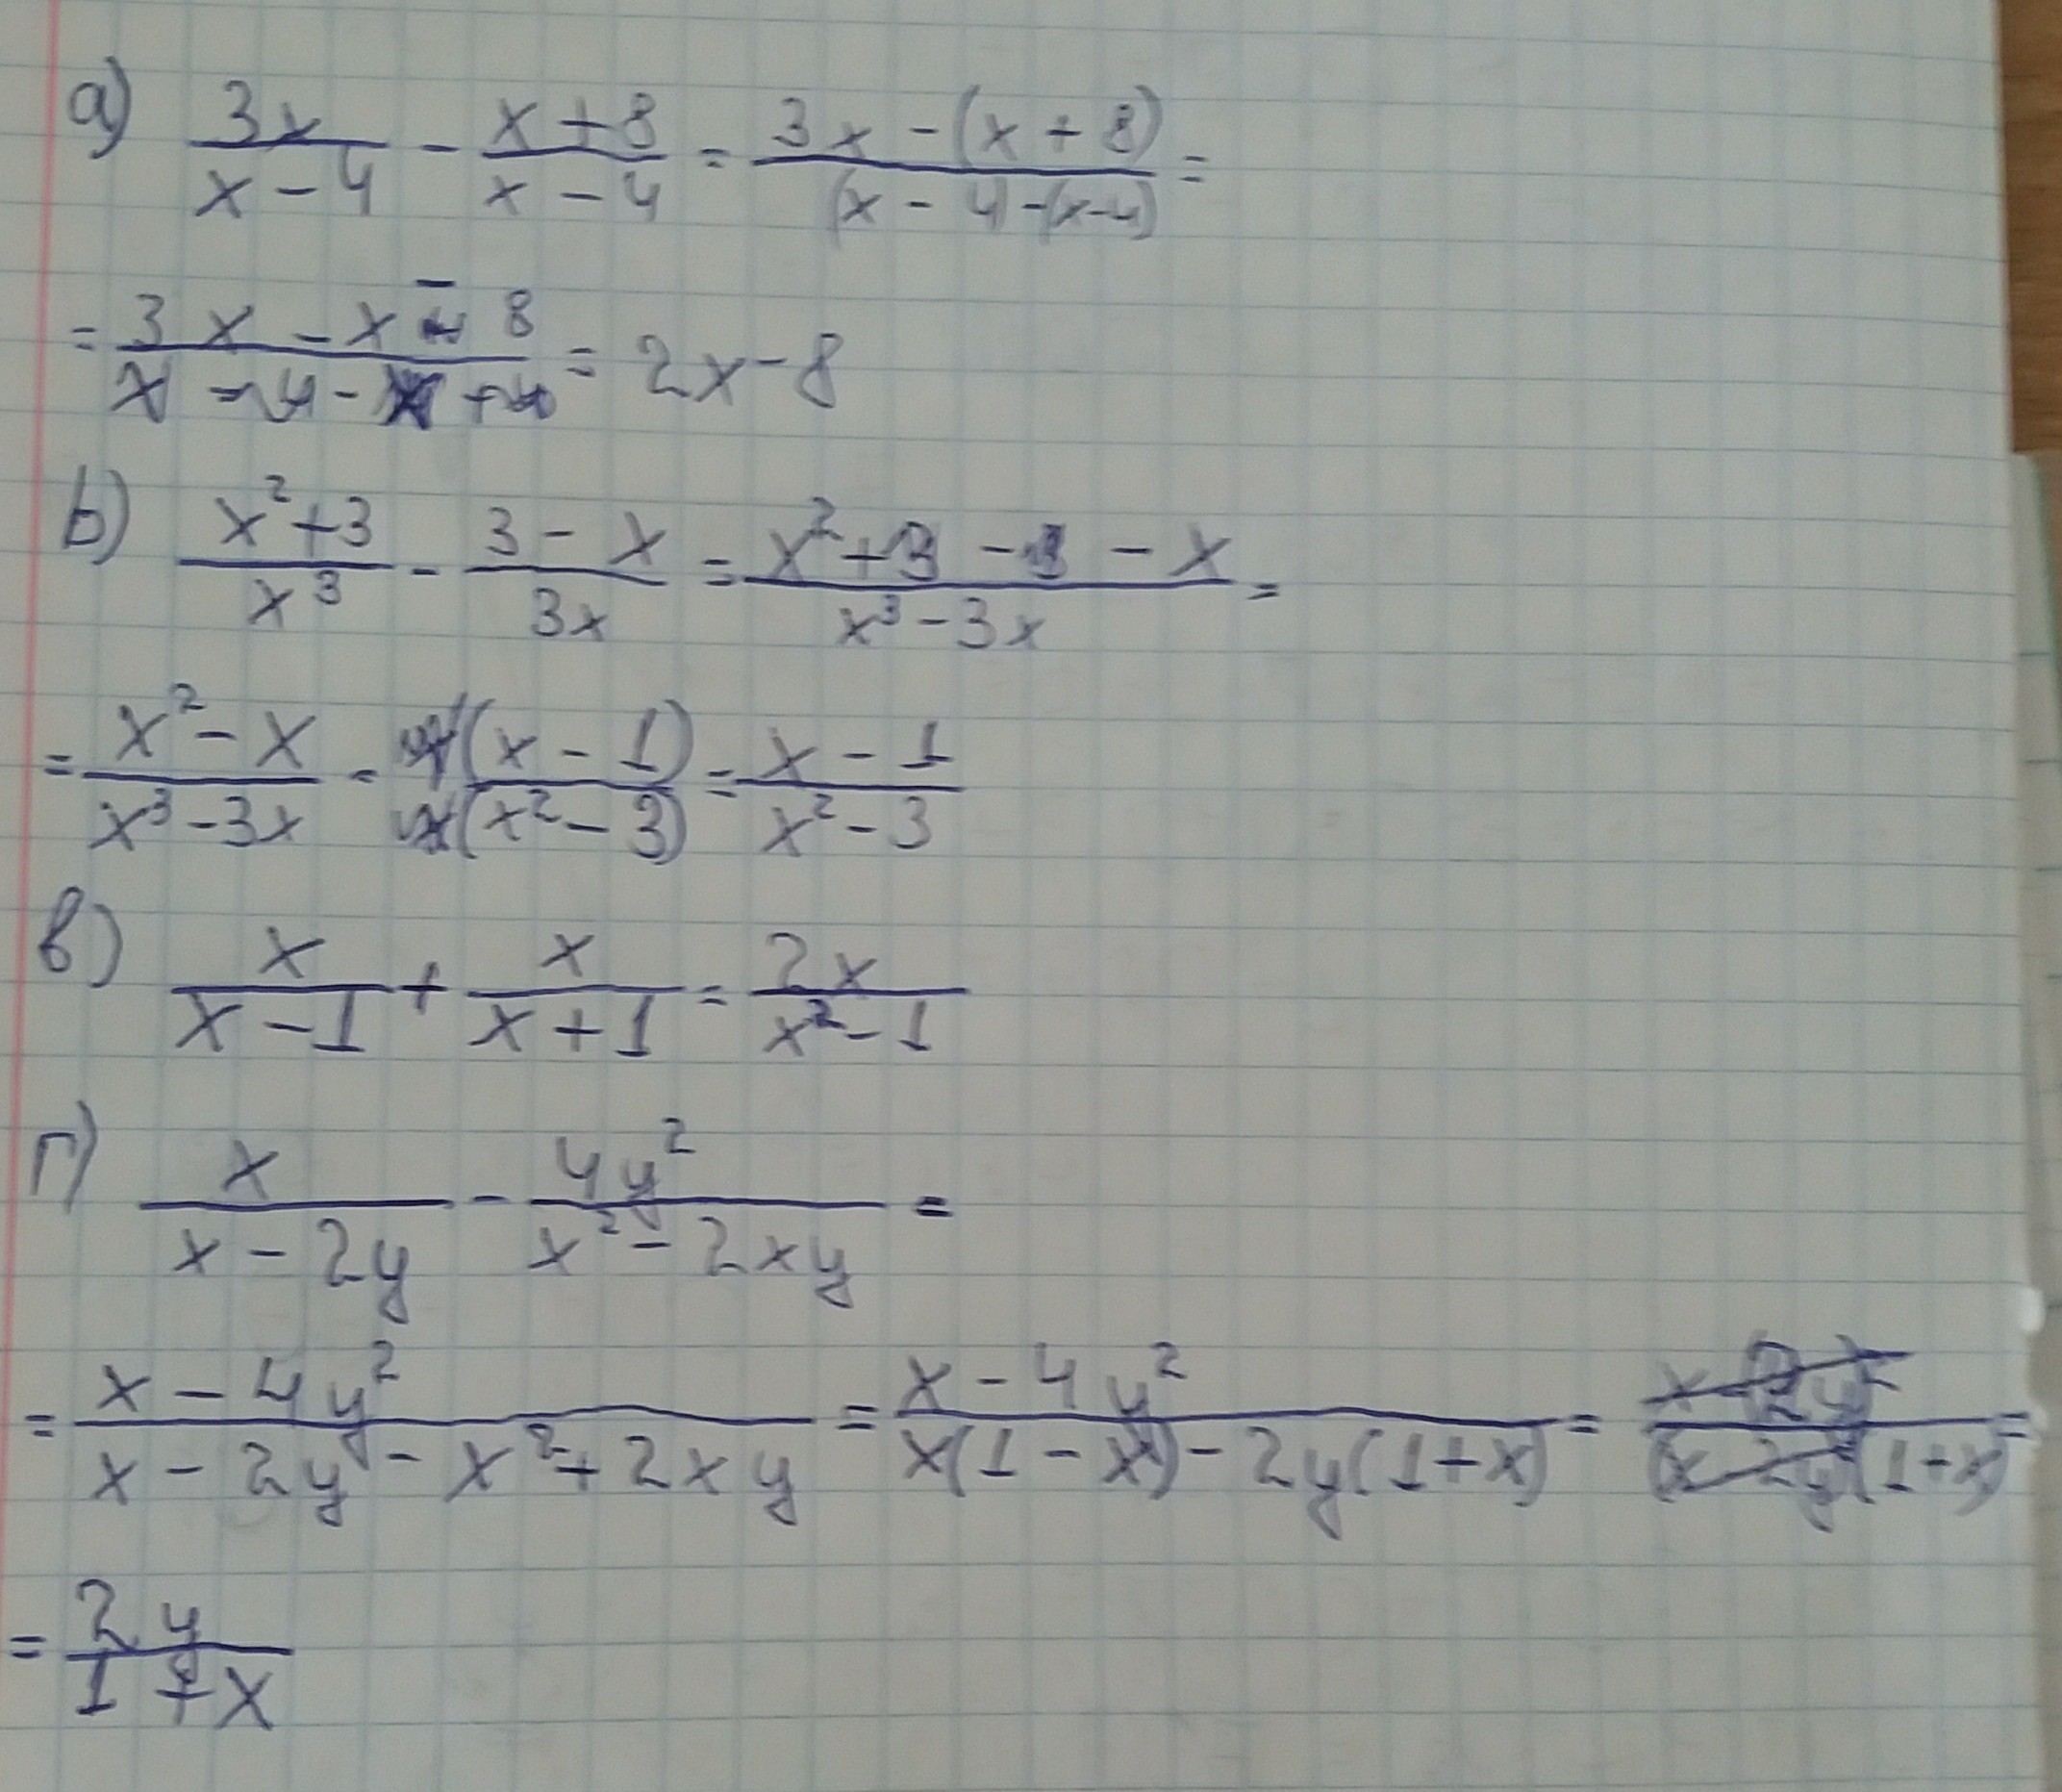 а) 3x/(x-4) - (x+8)/(x-4) = (3x-(x+8))/((x-4)-(x-4)) =
= (3x-x-8)/(x-4-x+4) = 2x-8
b) (x²+3)/x³ - (3-x)/3x = (x²+3-3-x)/(x³-3x) =
= (x²-x)/(x³-3x) - x(x-1)/x(x²-3) = (x-1)/(x²-3)
в) x/(x-1) + x/(x+1) = 2x/(x²-1)
г) x/(x-2y) - 4y²/(x²-2xy) =
= (x-4y²)/(x-2y-x²+2xy) = (x-4y²)/(x(1-x)-2y(1+x)) =
= 2y/(1+x)